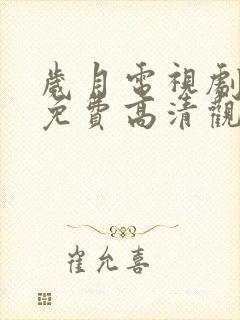 歲月電視劇
免費高清觀
崔允喜